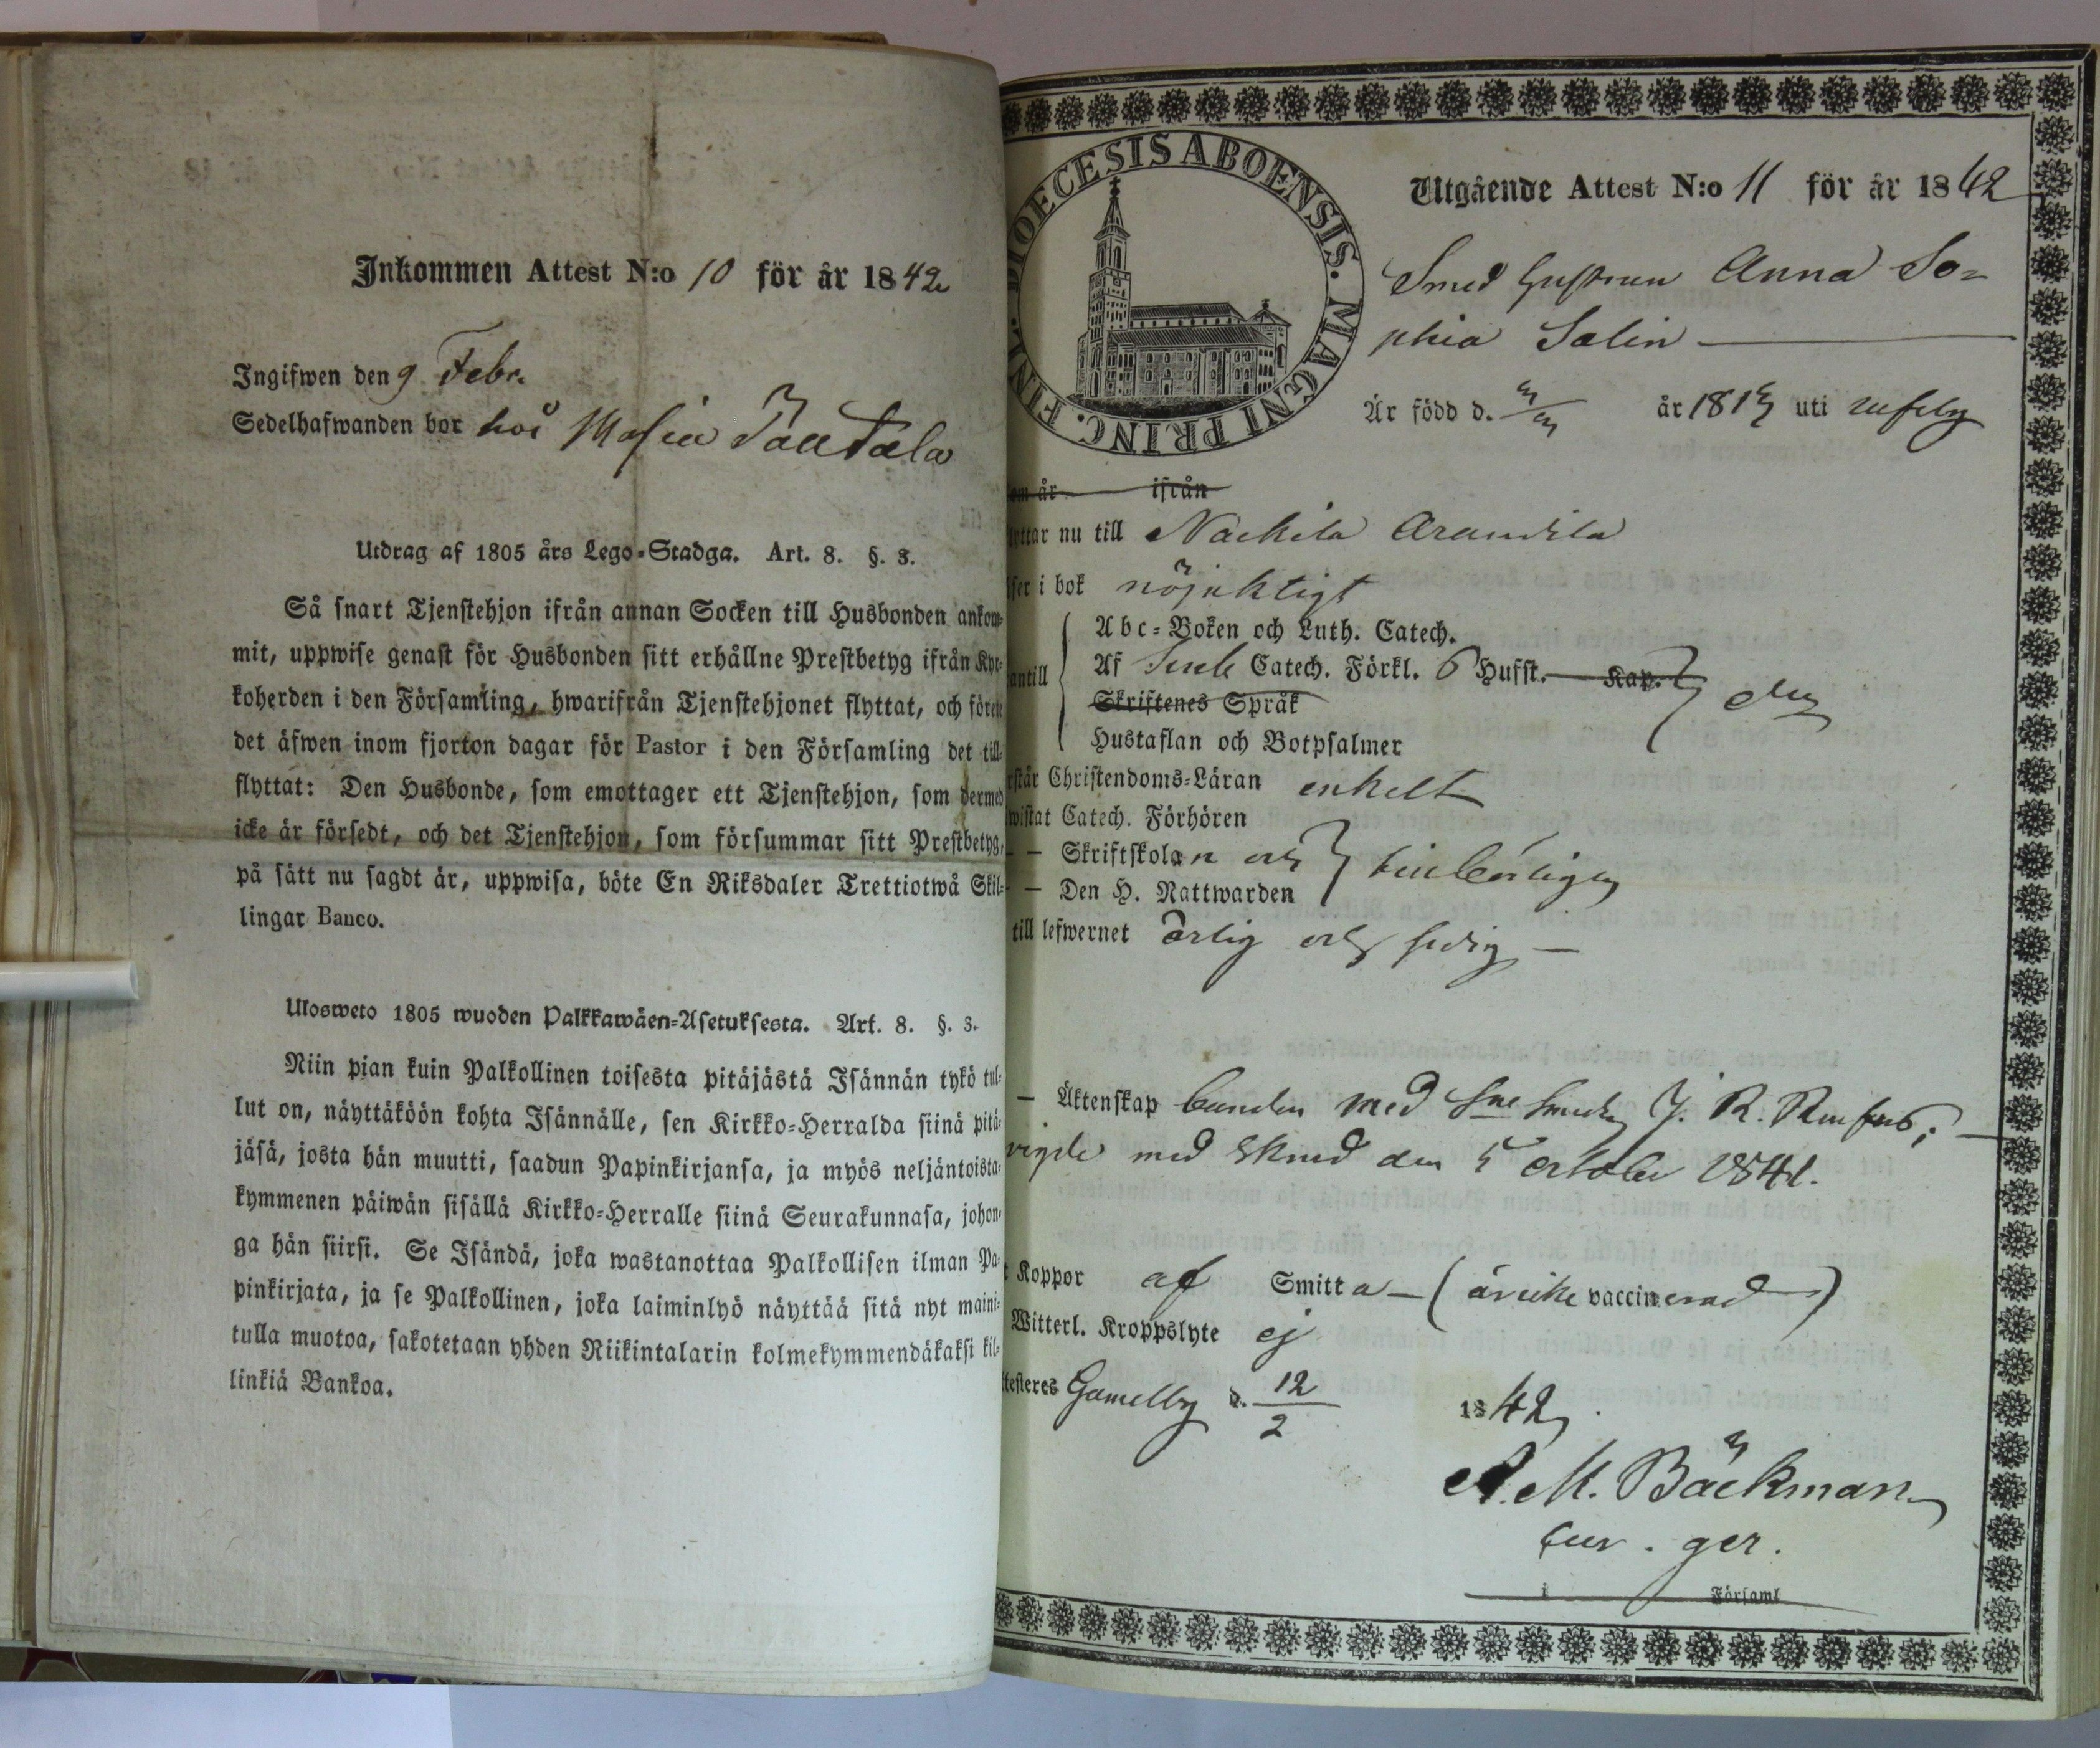 Inkommen Attest N:o 10 för år 1842
Ingifwen den 9 Febr.
Sedelhafwanden bor hos
Utdrag af 1805 års Lego-Stadga. Art. 8. §. 3.
Så snart Tjenstehjon ifrån annan Socken till Husbonden ankom-
mit, uppwise genast för Husbonden sitt erhållne Prestbetyg ifrån Kyr-
koherden i den Församling, hwarifrån Tjenstehjonet flyttat, och förete
det äfwen inom fjorton dagar för Pastor i den Församling det till-
flyttat: Den Husbonde, som emottager ett Tjenstehjon, som dermed
icke är försedt, och det Tjenstehjon, som försummar sitt Prestbetyg,
på sätt nu sagdt är, uppwisa, böte En Riksdaler Trettiotwå Skil-
lingar Banco.
Ulosweto 1805 wuoden Palkkawäen-Asetuksesta. Art. 8. §. 3.
Niin pian kuin Palkollinen toisesta pitäjästä Isännän tykö tul-
lut on, näyttäköön kohta Isännälle, sen Kirkko-Herralda siinä pitä-
jäsä, josta hän muutti, saadun Papinkirjansa, ja myös neljäntoista-
kymmenen päiwän sisällä Kirkko-Herralle siinä Seurakunnasa, johon-
ga hän siirsi. Se Isändä, joka wastanottaa Palkollisen ilman Pa-
pinkirjata, ja se Palkollinen, joka laiminlyö näyttää sitä nyt maini-
tulla muotoa, sakotetaan yhden Riikintalarin kolmekymmendäkaksi kil-
linkiä Bankoa.
DIOECESIS ABOENSIS. MAGNI PRINC. FINL.
Utgående Attest N:o 11 för år 1842
Smed Hustrun Anna So-
phia Salin
Är född d. år 181 uti
om år ifrån
lyttar nu till Nackila
ser i bok nöjaktigt
Abc-Boken och Luth. Catech.
antill Af Catech. Förkl. 6 Hufst. Kap.
Skriftenes Språk
Hustaflan och Botpsalmer
rstår Christendoms-Läran enkelt
wistat Catech. Förhören
— Skriftskolan och
— Den H. Nattwarden
till lefwernet ärlig och sedig —
— Äktenskap bunden med J. R.
vigde med den 5 October 1841.
t Koppor af Smitta — (är icke vaccinerad)
Witterl. Kroppslyte ej
ttesteres Gamelby d. 12/2 1842
A. M. Bäckman
cur. ger.
i Församl